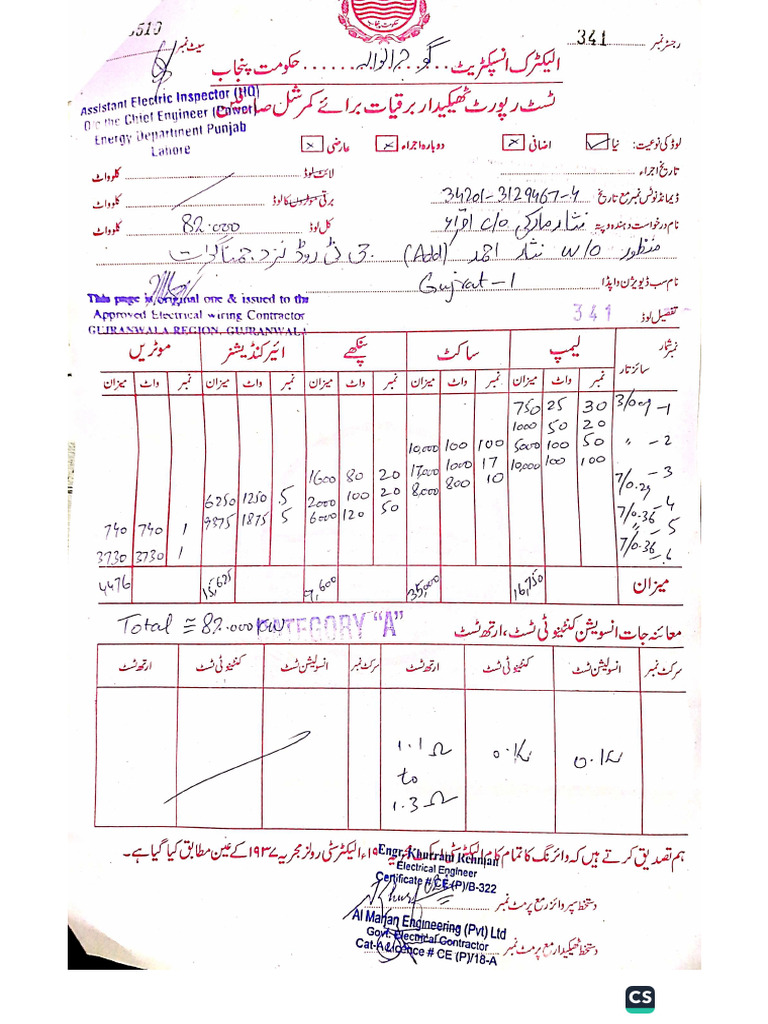 5510 سیٹ نمبر
رجسٹر نمبر 341
الیکٹرک انسپکٹریٹ گوجرانوالہ حکومت پنجاب
Assistant Electric Inspector (HQ)
O/o the Chief Engineer (Power)
Energy Department Punjab
Lahore
ٹسٹ رپورٹ ٹھیکیدار برقیات برائے کمرشل صارفین
لوڈ کی نوعیت: نیا ✓ اضافی × دوبارہ اجراء × عارضی ×
تاریخ اجراء لائٹ لوڈ کلوواٹ
ڈیمانڈ نوٹس نمبر مع تاریخ 34201-3129467-4 برقی لوڈ کلوواٹ
نام درخواست دہندہ و پتہ نثار مارکی c/o اقراء کل لوڈ 82.000 کلوواٹ
منظور w/o نثار احمد (Add) جی ٹی روڈ نزد گجرات
نام سب ڈویژن واپڈا Gujrat-1
This page is original one & issued to the
Approved Electrical wiring Contractor
GUJRANWALA REGION, GUJRANWALA
تفصیل لوڈ 341
نمبر شمار سائز تار لیمپ ساکٹ پنکھے ائیر کنڈیشنر موٹریں
نمبر واٹ میزان نمبر واٹ میزان نمبر واٹ میزان نمبر واٹ میزان نمبر واٹ میزان
1- 3/029 30 25 750
20 50 1000
2- " 50 100 5000 100 100 10,000
100 100 10,000 17 1000 17,000
3- 7/0.29 10 800 8,000 20 80 1600
4- 7/0.36 20 100 2000 5 1250 6250
5- " 50 120 6000 5 1875 9375
1 740 740
6- 7/0.36 1 3730 3730
میزان 16,750 35,000 9,600 15,625 4476
Total ≅ 82.000 KW
CATEGORY "A"
معائنہ جات انسولیشن کنٹینیوٹی ٹسٹ، ارتھ ٹسٹ
سرکٹ نمبر انسولیشن ٹسٹ کنٹینیوٹی ٹسٹ ارتھ ٹسٹ سرکٹ نمبر انسولیشن ٹسٹ کنٹینیوٹی ٹسٹ ارتھ ٹسٹ
o.k o.k 1.1 Ω
to
1.3 Ω
ہم تصدیق کرتے ہیں کہ وائرنگ کا تمام کام الیکٹرسٹی ایکٹ الیکٹرسٹی رولز مجریہ ۱۹۳۷ کے عین مطابق کیا گیا ہے۔
Engr. Khurram Rehman
Electrical Engineer
Certificate # CE (P)/B-322
دستخط سپروائزر مع پرمٹ نمبر
Al Mahan Engineering (Pvt) Ltd
Govt. Electrical Contractor
Cat-A Licence # CE (P)/18-A
دستخط ٹھیکیدار مع پرمٹ نمبر
CS